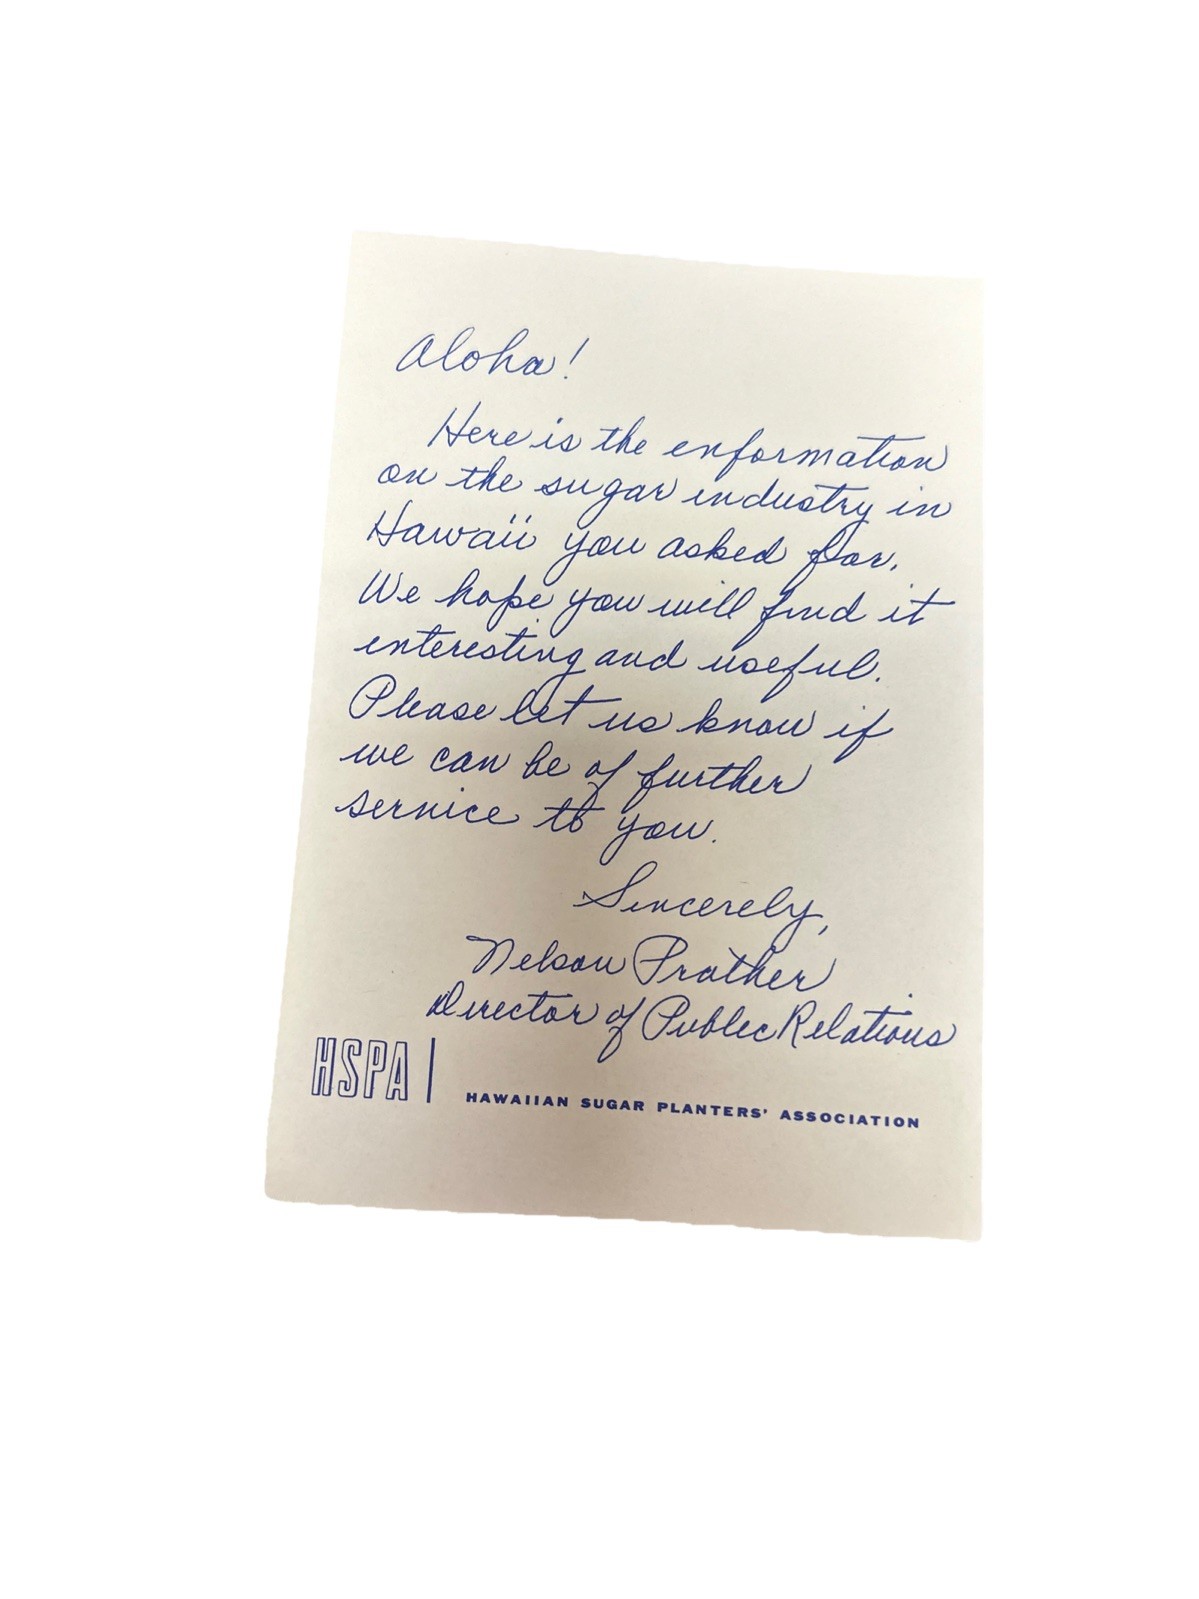 Aloha!
Here is the information
on the sugar industry in
Hawaii you asked for.
We hope you will find it
interesting and useful.
Please let us know if
we can be of further
service to you.
Sincerely,
Nelson Prather
Director of Public Relations
HSPA | HAWAIIAN SUGAR PLANTERS' ASSOCIATION